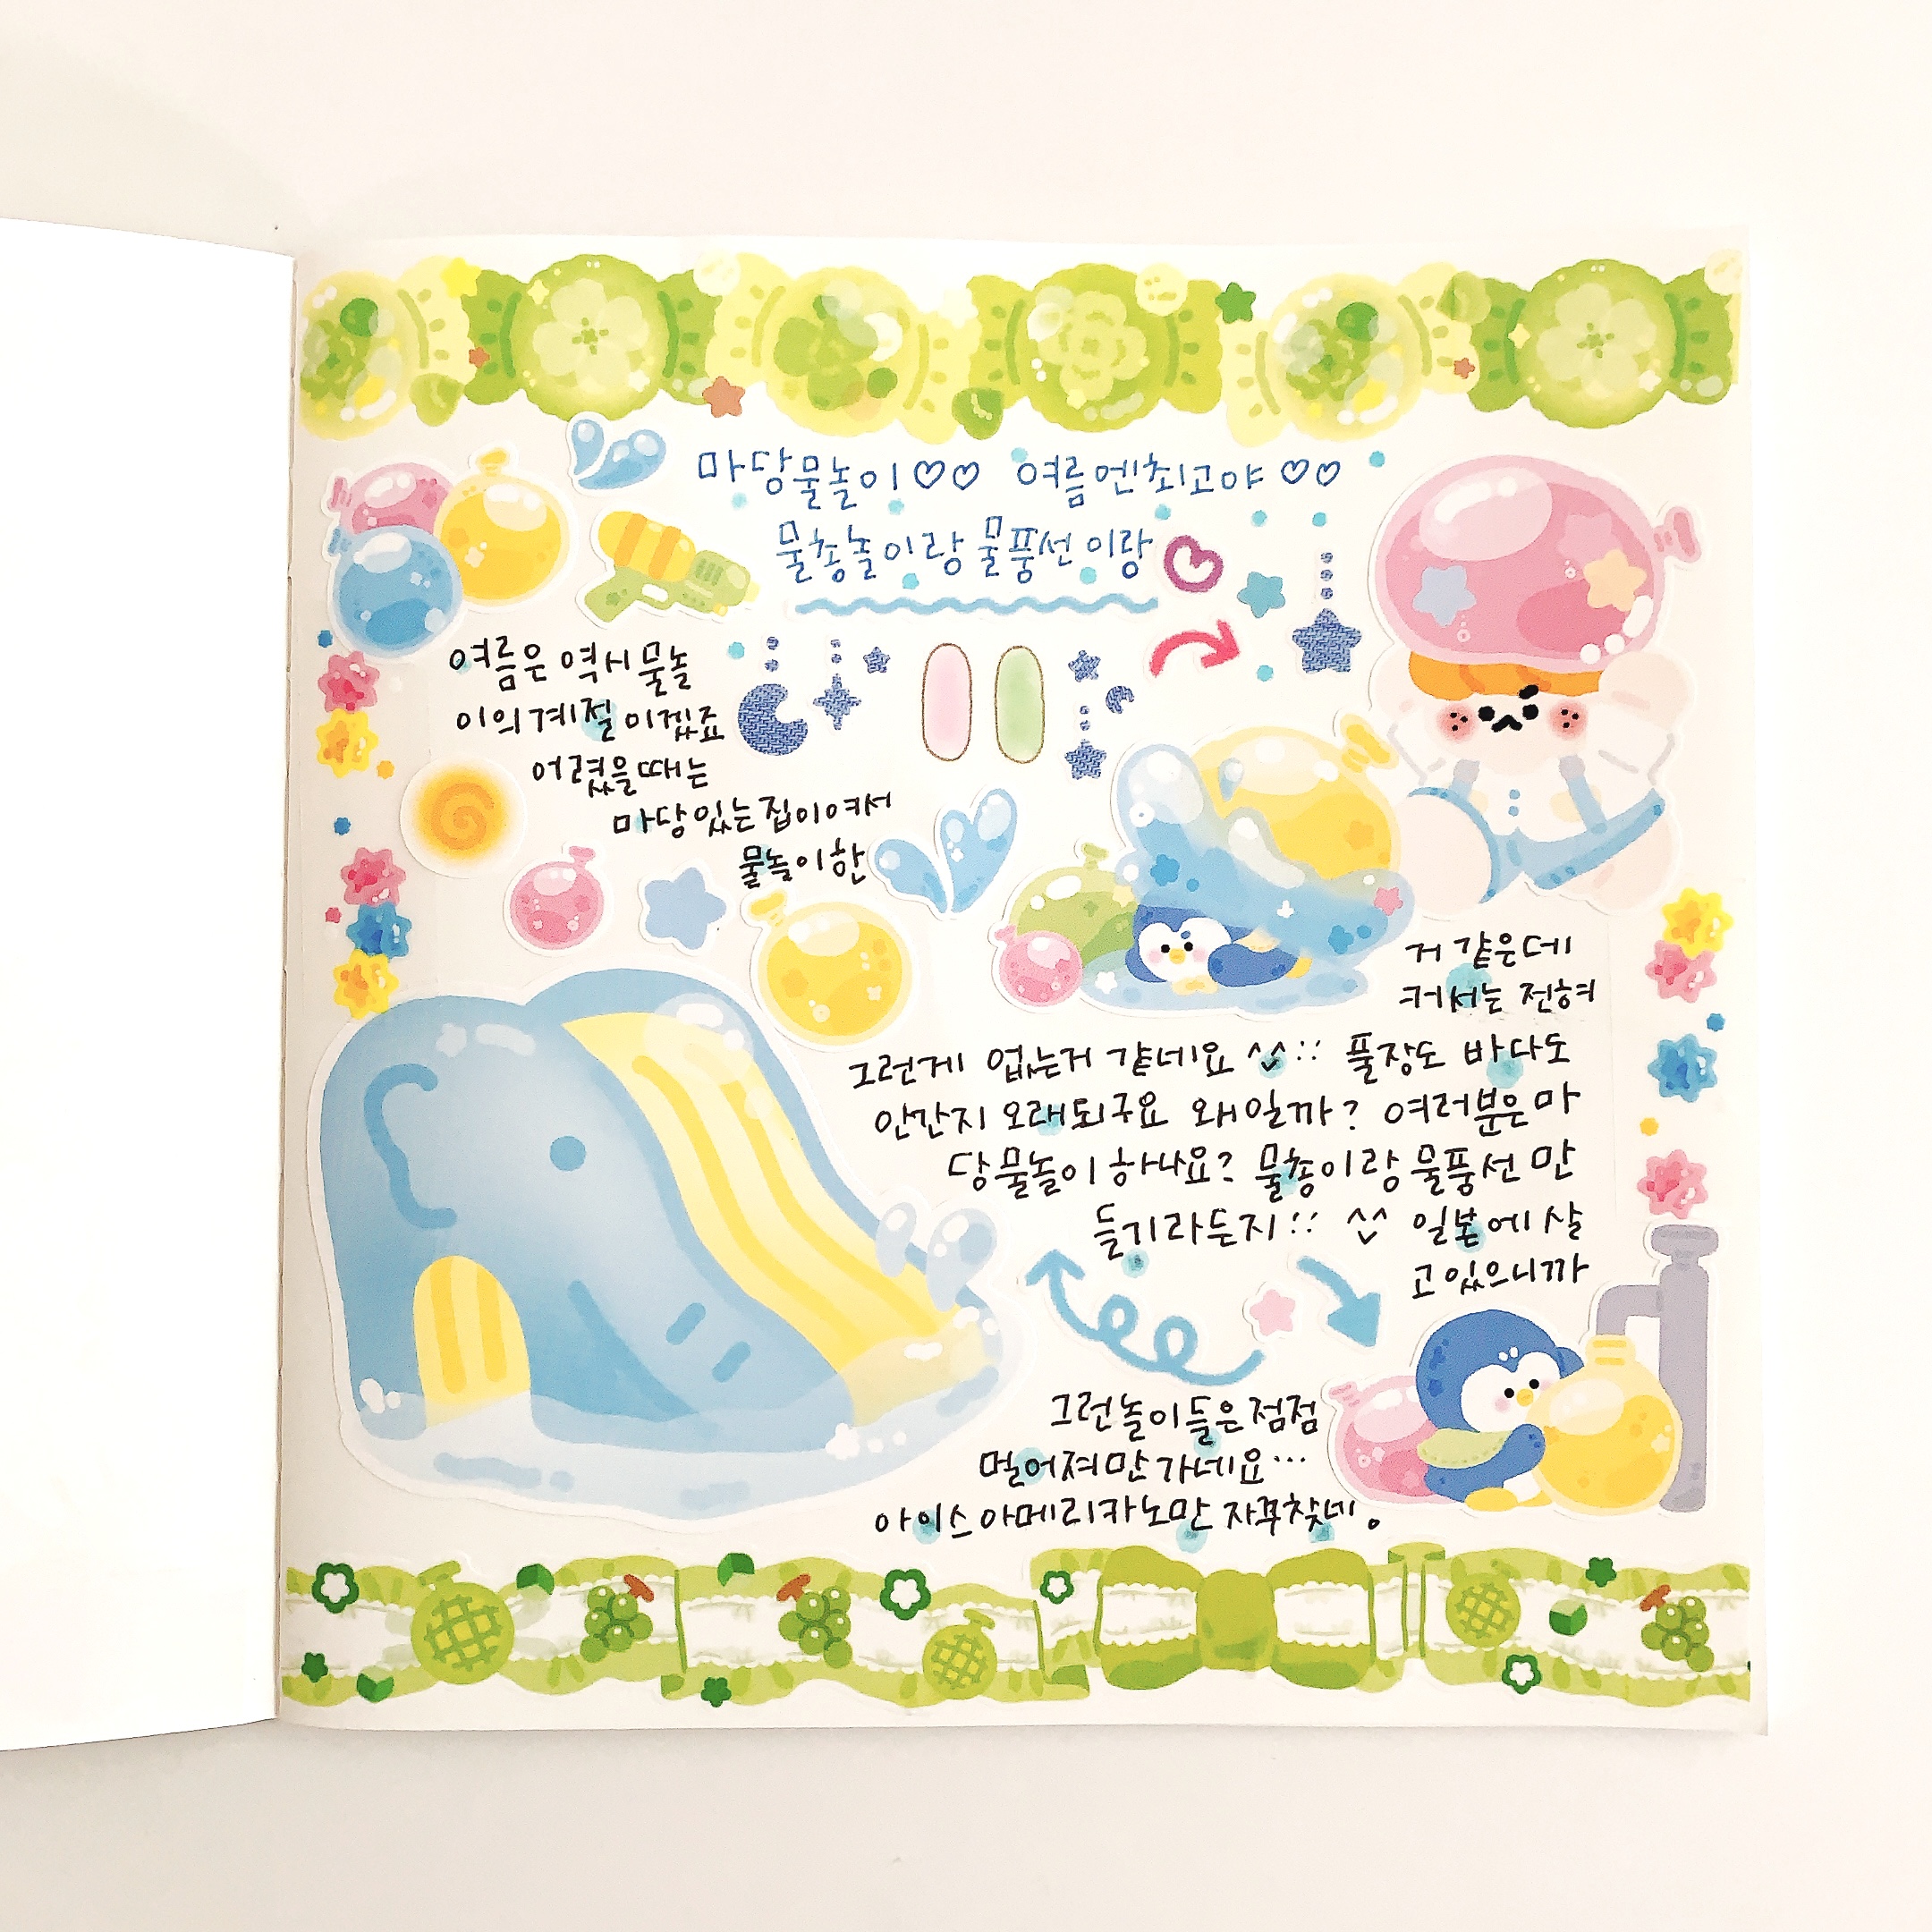 마당물놀이♡♡ 여름엔최고야♡♡
물총놀이랑 물풍선이랑
여름은 역시 물놀
이의계절이겠죠
어렸을때는
마당있는집이여서
물놀이한
거 같은데
커서는 전혀
그런게 없는거 같네요 ^^:: 풀장도 바다도
안간지 오래되구요 왜일까? 여러분은마
당물놀이하나요? 물총이랑물풍선만
들기라든지:: ^^ 일본에살
고있으니까
그런놀이들은점점
멀어져만가네요···
아이스아메리카노만 자꾸찾네。